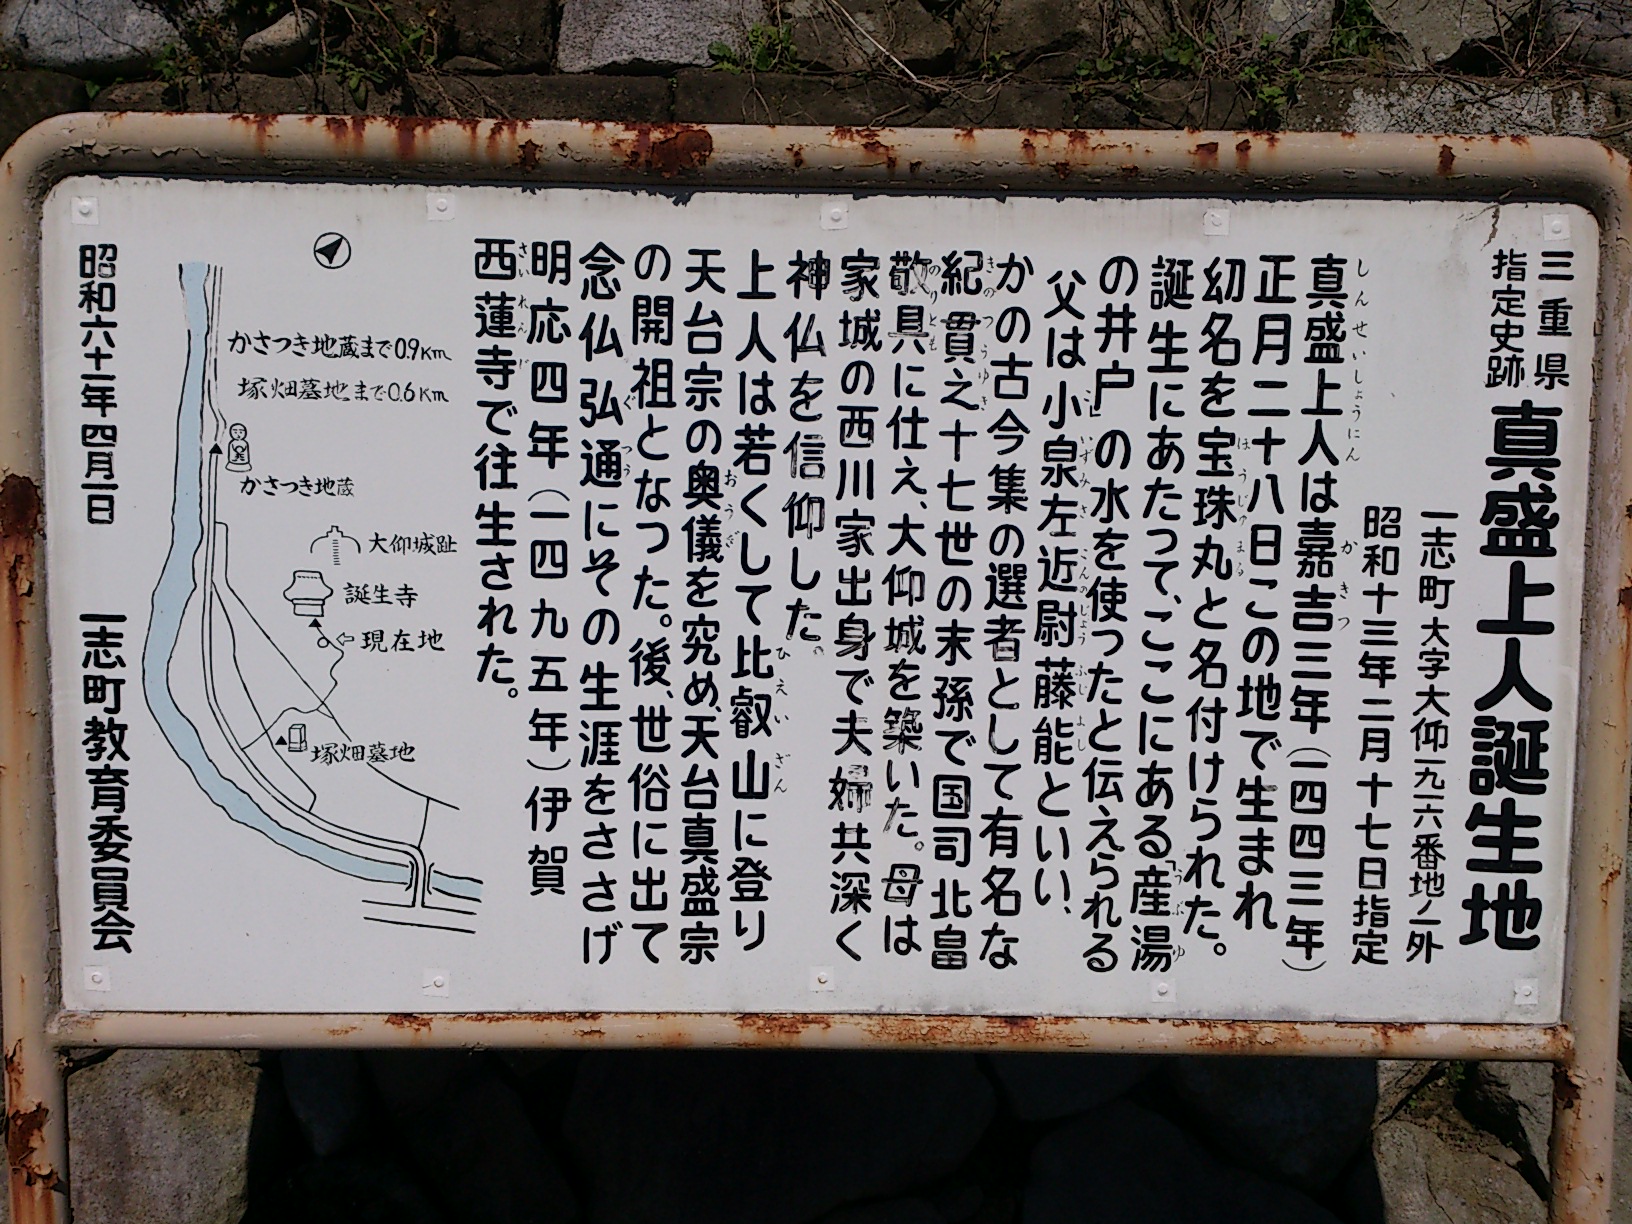 三重県
指定史跡
真盛上人誕生地
一志町大字大仰一九一六番地ノ一外
昭和十三年二月十七日指定
真盛上人は嘉吉三年（一四四三年）
正月二十八日この地で生まれ
幼名を宝珠丸と名付けられた。
誕生にあたって、ここにある「産湯
の井戸」の水を使ったと伝えられる
父は小泉左近尉藤能といい、
かの古今集の選者として有名な
紀貫之十七世の末孫で国司北畠
敬具に仕え、大仰城を築いた。母は
家城の西川家出身で夫婦共深く
神仏を信仰した。
上人は若くして比叡山に登り
天台宗の奥儀を究め、天台真盛宗
の開祖となつた。後、世俗に出て
念仏弘通にその生涯をささげ
明応四年（一四九五年）伊賀
西蓮寺で往生された。
かさつき地蔵まで0.9Km
塚畑墓地まで0.6Km
かさつき地蔵
大仰城趾
誕生寺
⇦現在地
塚畑墓地
昭和六十一年四月一日
一志町教育委員会